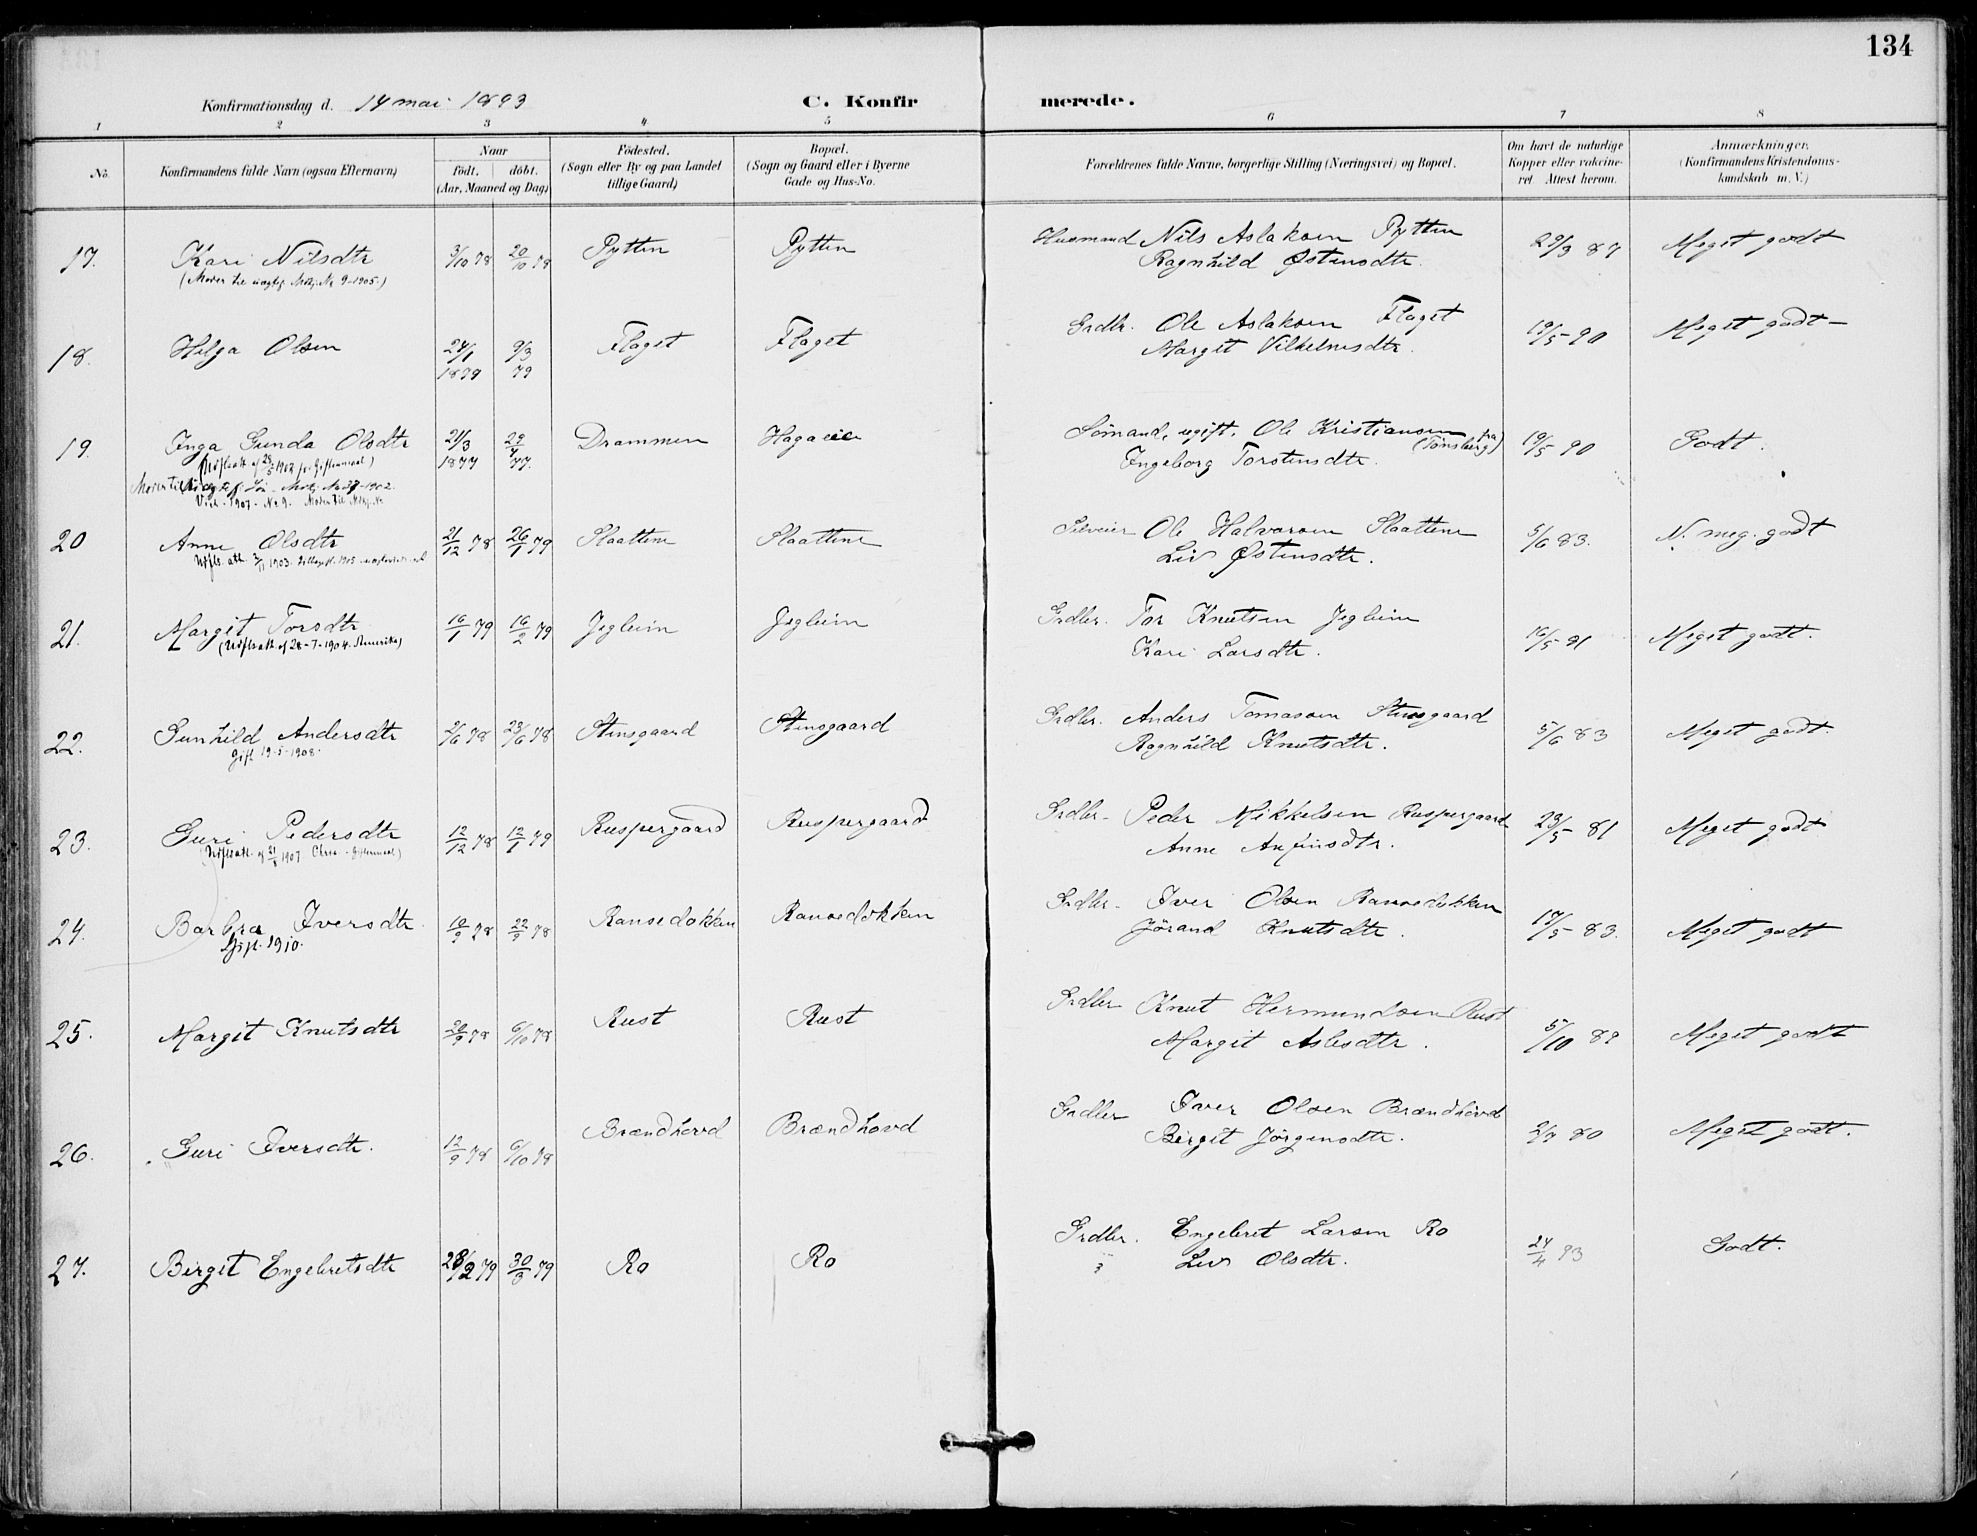 134
Konfirmationsdag d. 14 mai 1893 C. Konfirmerede.
1 2 3 4 5 6 7 8
No. Konfirmandens fulde Navn (ogsaa Efternavn) Naar födt. döbt. (Aar, Maaned og Dag) Födested. (Sogn eller By og paa Landet tillige Gaard) Bopæl. (Sogn og Gaard eller i Byerne Gade og Hus-No. Forældrenes fulde Navne, borgerlige Stilling (Næringsvei) og Bopæl. Om havt de naturlige Kopper eller vakcineret. Attest herom. Anmærkninger. (Konfirmandens Kristendomskundskab m. V.)
17. Kari Nilsdtr 3/10 78 20/10 78 Pytten Pytten Husmand Nils Aslaksen Pytten 29/3 87 Meget godt
(Moder til uægtef. No 9-1905.) Ragnhild Østensdtr.
18. Helga Olsen 24/1 1879 9/3 79 Flaget Flaget Grdbr. Ole Aslaksen Flaget 19/5 90 Meget godt
Margit Vilhelmsdtr.
19. Inga Gunda Olsdtr 21/3 1877 29/4 77. Drammen Hagaeie Sömand, ugift, Ole Kristiansen (fra Tønsberg) 19/5 90 Godt.
1902 Ingeborg Torstensdtr.
Moder til 1902.
1907 - No 9. Moder til
20 Anne Olsdtr 21/12 78 26/1 79 Slaatten Slaatten Selveier Ole Halvorsen Slaatten 5/6 83. N. meg. godt
1903. Liv Østensdtr.
21. Margit Torsdtr 16/1 79 16/2 79 Jegleim Jegleim Grdbr. Tor Knutsen Jegleim 16/5 91 Meget godt.
(Udflatt. af 28-7-1904. Amerika) Kari Larsdtr.
22. Gunhild Andersdtr 2/6 78 23/6 78 Stensgaard Stensgaard Grdbr. Anders Tomassen Stensgaard 5/6 83 Meget godt.
Gift 19-5-1908. Ragnhild Knutsdtr.
23. Guri Pedersdtr 12/12 78 12/1 79 Ruspergaard Ruspergaard Grdbr. Peder Mikkelsen Ruspergaard 23/5 81 Meget godt
1907. Anne Anfinsdtr.
24. Barbra Iversdtr. 10/9 78 22/9 78 Ransedokken Ransedokken Grdbr. Iver Olsen Ransedokken 17/5 83. Meget godt
Gift. 1910. Jörand Knutsdtr.
25. Margit Knutsdtr 20/9 78 6/10 78 Rust Rust Grdbr Knut Hermundsen Rust 5/10 89 Meget godt
Margit Aslesdtr.
26. Guri Iversdtr. 12/9 78 6/10 78 Brændhovd Brændhovd Grdbr Iver Olsen Brændhovd 2/7 80 Meget godt.
Birgit Jörgensdtr.
27. Birgit Engebretsdtr 28/2 79 30/3 79 Ro Ro Grdbr. Engebret Larsen Ro 24/4 93 Godt.
Liv Olsdtr.